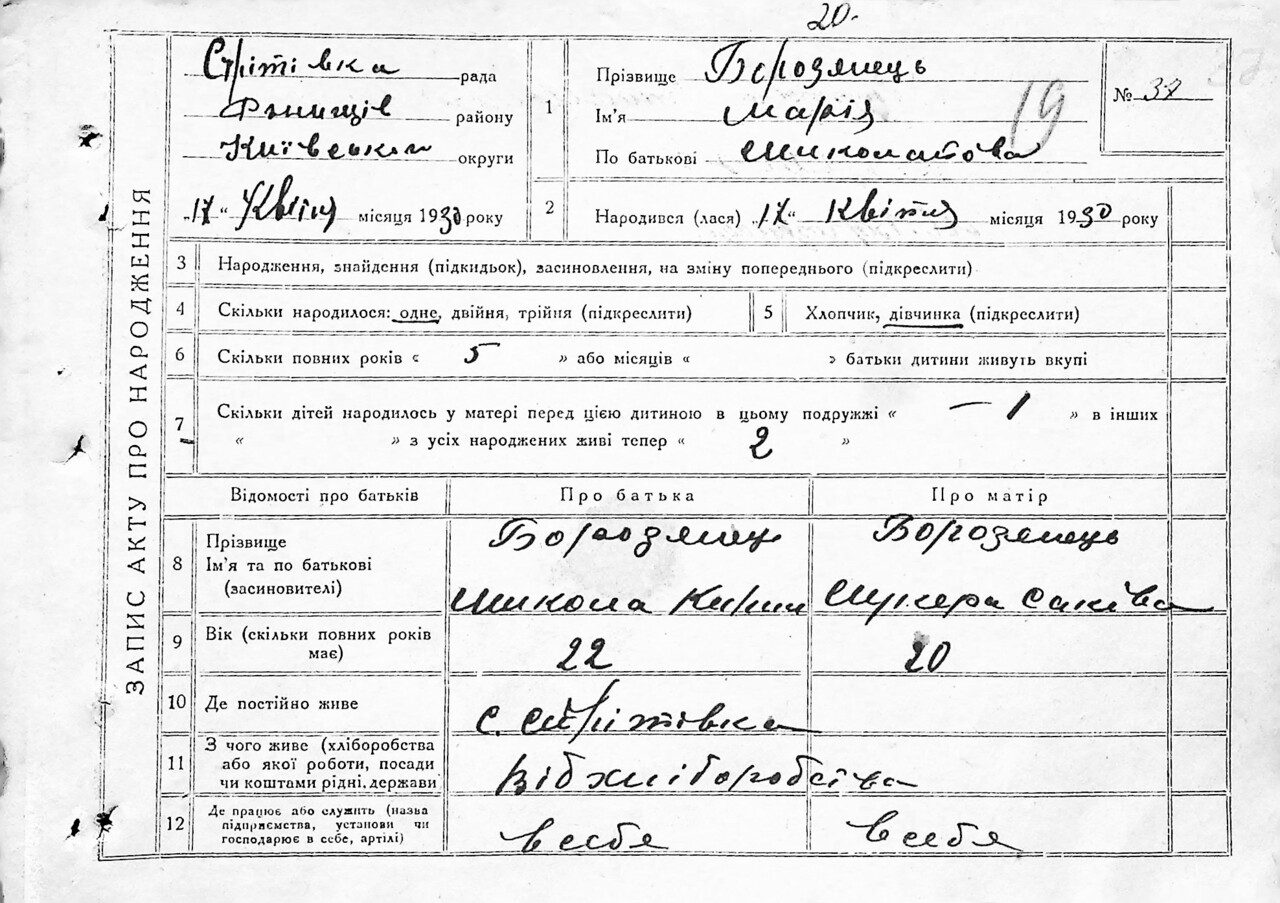 20.
ЗАПИС АКТУ ПРО НАРОДЖЕННЯ
Стрітівка рада
району
Київської округи
„17“ Квітня місяця 1930 року
1 Прізвище Бородянець
Ім'я Марія
По батькові Миколаївна
19
№ 37
2 Народився (лася) „17“ Квітня місяця 1930 року
3 Народження, знайдення (підкидьок), засиновлення, на зміну попереднього (підкреслити)
4 Скільки народилося: одне, двійня, трійня (підкреслити)
5 Хлопчик, дівчинка (підкреслити)
6 Скільки повних років « 5 » або місяців « » батьки дитини живуть вкупі
7 Скільки дітей народилось у матері перед цією дитиною в цьому подружжі « — 1 » в інших
« » з усіх народжених живі тепер « 2 »
Відомості про батьків Про батька Про матір
8 Прізвище Бородянець Бородянець
Ім'я та по батькові
(засиновителі) Микола
9 Вік (скільки повних років
має) 22 20
10 Де постійно живе с. Стрітовка
11 З чого живе (хліборобства
або якої роботи, посади
чи коштами рідні, держави від хліборобства
12 Де працює або служить (назва
підприємства, установи чи
господарює в себе, артілі) в себя в себя